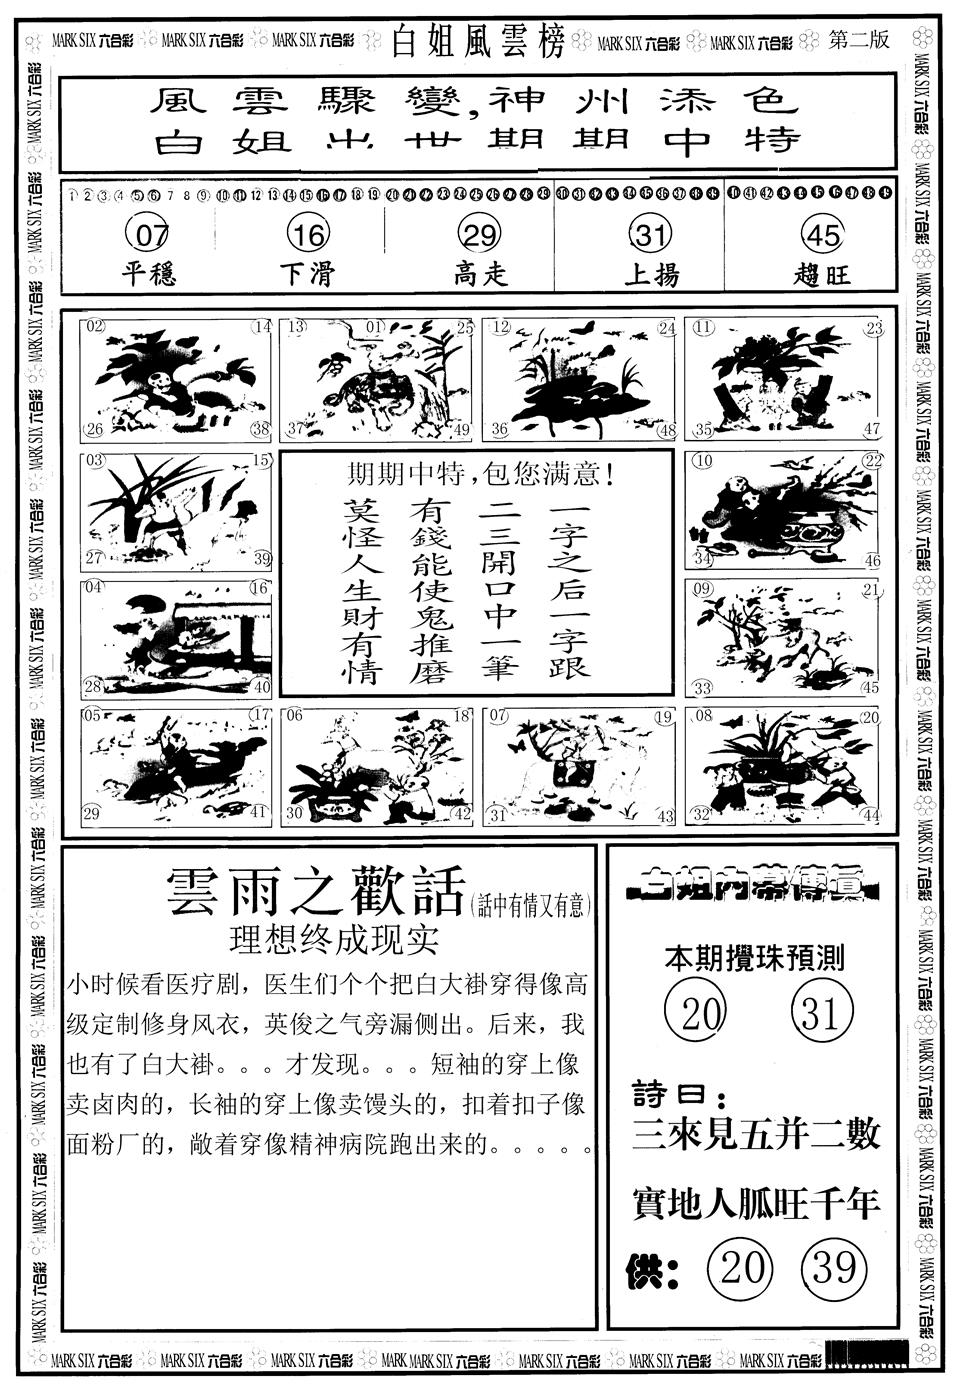 MARK SIX 六合彩 MARK SIX 六合彩 MARK SIX 六合彩 白姐風雲榜 MARK SIX 六合彩 MARK SIX 六合彩 第二版
風雲驟變,神州添色
白姐出世期期中特
1 2 3 4 5 6 7 8 9 10 11 12 13 14 15 16 17 18 19 20 21 22 23 24 25 26 27 28 29 30 31 32 33 34 35 36 37 38 39 40 41 42 43 44 45 46 47 48 49
07 16 29 31 45
平穩 下滑 高走 上揚 趨旺
02 14 13 01 25 12 24 11 23
26 38 37 49 36 48 35 47
03 15
27 39
04 16
28 40
期期中特,包您满意!
一字之后一字跟
二三開口中一筆
有錢能使鬼推磨
莫怪人生財有情
10 22
34 46
09 21
33 45
05 17 06 18 07 19 08 20
29 41 30 42 31 43 32 44
雲雨之歡話(話中有情又有意)
理想终成现实
小时候看医疗剧，医生们个个把白大褂穿得像高
级定制修身风衣，英俊之气旁漏侧出。后来，我
也有了白大褂。。。才发现。。。短袖的穿上像
卖卤肉的，长袖的穿上像卖馒头的，扣着扣子像
面粉厂的，敞着穿像精神病院跑出来的。。。。。
白姐内幕傳真
本期攪珠預測
20 31
詩曰:
三來見五并二數
實地人胍旺千年
供: 20 39
MARK SIX 六合彩 MARK SIX 六合彩 MARK SIX 六合彩 MARK MARK SIX 六合彩 MARK SIX 六合彩 MARK SIX 六合彩 MARK SIX 六合彩